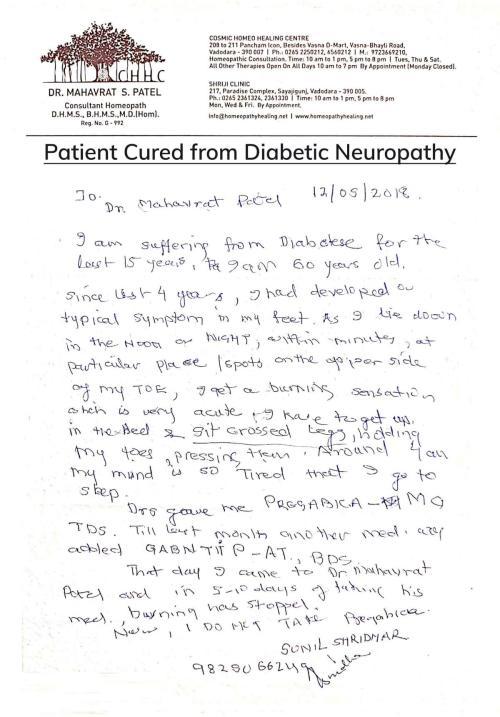 CHHC
DR. MAHAVRAT S. PATEL
Consultant Homeopath
D.H.M.S., B.H.M.S., M.D.(Hom).
Reg. No. G - 992
COSMIC HOMEO HEALING CENTRE
208 to 211 Pancham Icon, Besides Vasna D-Mart, Vasna-Bhayli Road,
Vadodara - 390 007 | Ph.: 0265 2250212, 6560212 | M.: 9723669210,
Homeopathic Consultation. Time: 10 am to 1 pm, 5 pm to 8 pm | Tues, Thu & Sat.
All Other Therapies Open On All Days 10 am to 7 pm By Appointment (Monday Closed).
SHRIJI CLINIC
217, Paradise Complex, Sayajigunj, Vadodara - 390 005.
Ph.: 0265 2361324, 2361330 | Time: 10 am to 1 pm, 5 pm to 8 pm
Mon, Wed & Fri. By Appointment.
info@homeopathyhealing.net | www.homeopathyhealing.net
Patient Cured from Diabetic Neuropathy
To. 12/05/2018.
Dr. Mahavrat Patel
I am suffering from Diabetese for the
last 15 years, I am 60 years old.
since last 4 years, I had developed a
typical symptom in my feet. As I lie down
in the Noon or NIGHT, within minutes, at
particular place / spots on the upper side
of my TOE, I get a burning sensation
which is very acute, I have to get up
in the Bed & sit crossed legs, holding
my toes, pressing them. Around 4 am
my mind is so Tired that I go to
sleep.
Drs gave me PREGABICA - MG
TDS. Till last month another med.
added GABNTIT P-AT, BDS
That day I came to Dr Mahavrat
Patel and in 5-10 days of taking his
med., burning has stopped.
Now, I DO NOT TAKE
SUNIL SHRIDHAR